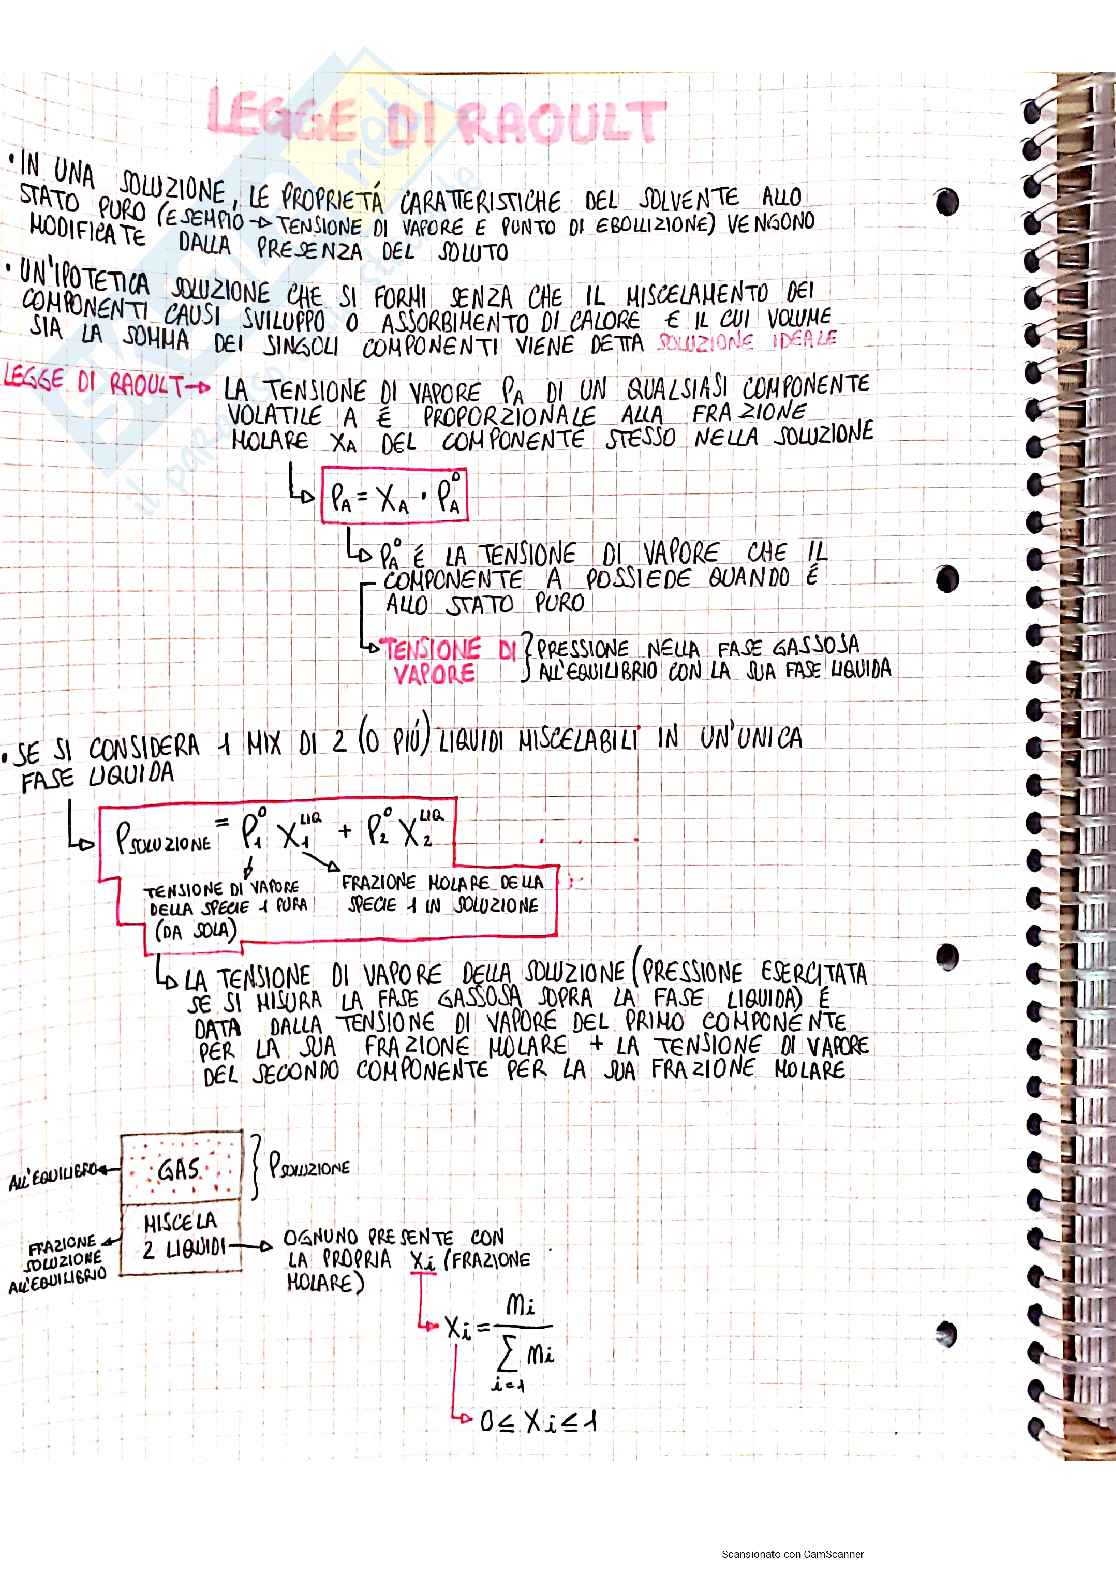 LEGGE DI RAOULT
• IN UNA SOLUZIONE, LE PROPRIETÁ CARATTERISTICHE DEL SOLVENTE ALLO
STATO PURO (ESEMPIO → TENSIONE DI VAPORE E PUNTO DI EBOLLIZIONE) VENGONO
MODIFICATE DALLA PRESENZA DEL SOLUTO
• UN'IPOTETICA SOLUZIONE CHE SI FORMI SENZA CHE IL MISCELAMENTO DEI
COMPONENTI CAUSI SVILUPPO O ASSORBIMENTO DI CALORE E IL CUI VOLUME
SIA LA SOMMA DEI SINGOLI COMPONENTI VIENE DETTA SOLUZIONE IDEALE
LEGGE DI RAOULT → LA TENSIONE DI VAPORE PA DI UN QUALSIASI COMPONENTE
VOLATILE A É PROPORZIONALE ALLA FRAZIONE
MOLARE XA DEL COMPONENTE STESSO NELLA SOLUZIONE
PA = XA · PA°
PA° É LA TENSIONE DI VAPORE CHE IL
COMPONENTE A POSSIEDE QUANDO É
ALLO STATO PURO
TENSIONE DI VAPORE } PRESSIONE NELLA FASE GASSOSA
ALL'EQUILIBRIO CON LA SUA FASE LIQUIDA
• SE SI CONSIDERA 1 MIX DI 2 (O PIÚ) LIQUIDI MISCELABILI IN UN'UNICA
FASE LIQUIDA
PSOLUZIONE = P1° X1^LIQ + P2° X2^LIQ
TENSIONE DI VAPORE
DELLA SPECIE 1 PURA
(DA SOLA)
FRAZIONE MOLARE DELLA
SPECIE 1 IN SOLUZIONE
LA TENSIONE DI VAPORE DELLA SOLUZIONE (PRESSIONE ESERCITATA
SE SI MISURA LA FASE GASSOSA SOPRA LA FASE LIQUIDA) É
DATA DALLA TENSIONE DI VAPORE DEL PRIMO COMPONENTE
PER LA SUA FRAZIONE MOLARE + LA TENSIONE DI VAPORE
DEL SECONDO COMPONENTE PER LA SUA FRAZIONE MOLARE
ALL'EQUILIBRO ← GAS } PSOLUZIONE
FRAZIONE
SOLUZIONE
ALL'EQUILIBRIO
MISCELA
2 LIQUIDI → OGNUNO PRESENTE CON
LA PROPRIA Xi (FRAZIONE
MOLARE)
Xi = mi / ∑ i=1 mi
0 ≤ Xi ≤ 1
Scansionato con CamScanner